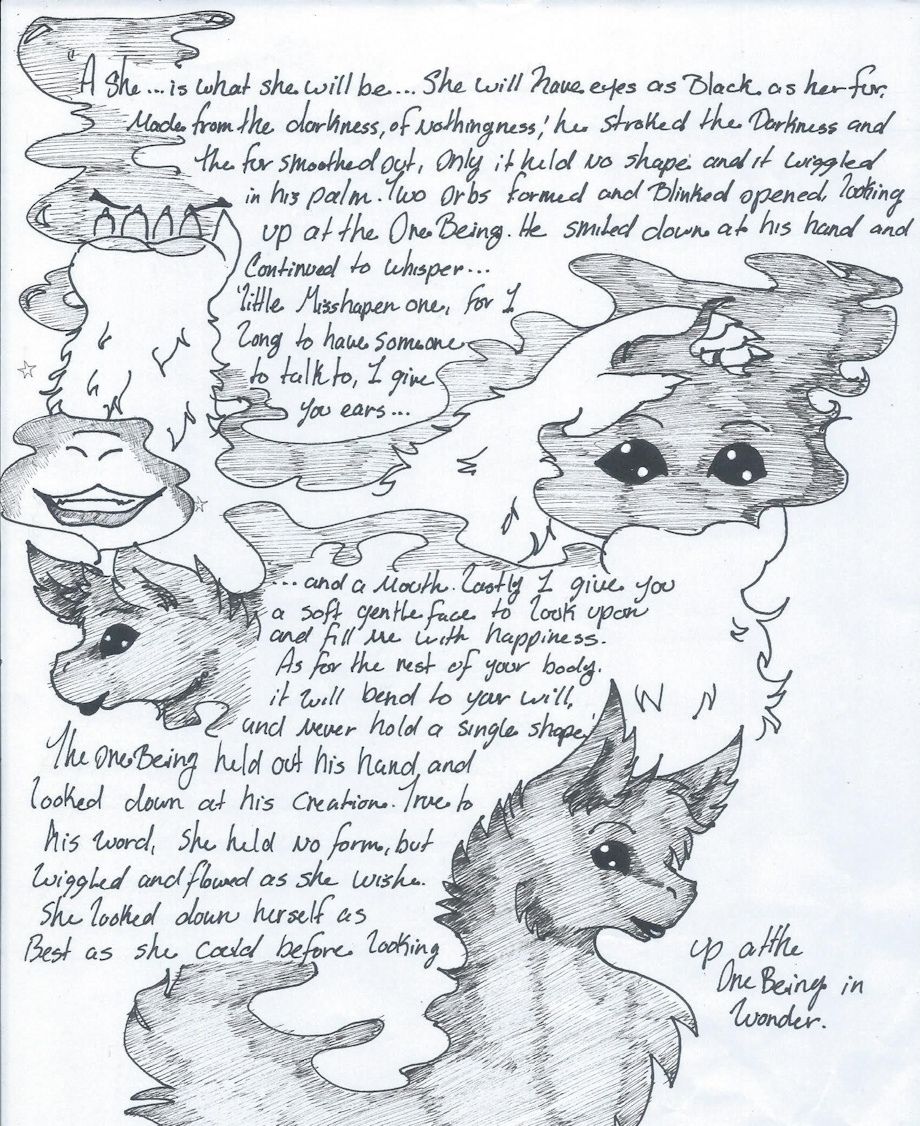 "A she... is what she will be... She will have eyes as Black as her fur.
Made from the darkness, of nothingness,' he stroked the Darkness and
the fur smoothed out, Only it held no shape and it wiggled
in his palm. Two Orbs formed and Blinked opened, looking
up at the One Being. He smiled down at his hand and
Continued to whisper...
'little Misshapen one, for I
long to have someone
to talk to, I give
you ears...
... and a mouth. Lastly I give you
a soft gentle face to look upon
and fill me with happiness.
As for the rest of your body.
it will bend to your will,
and never hold a single shape.'
The One Being held out his hand and
looked down at his Creation. True to
his word, She held no form, but
wiggled and flowed as she wishe.
She looked down herself as
Best as she could before looking
up at the
One Being in
Wonder.